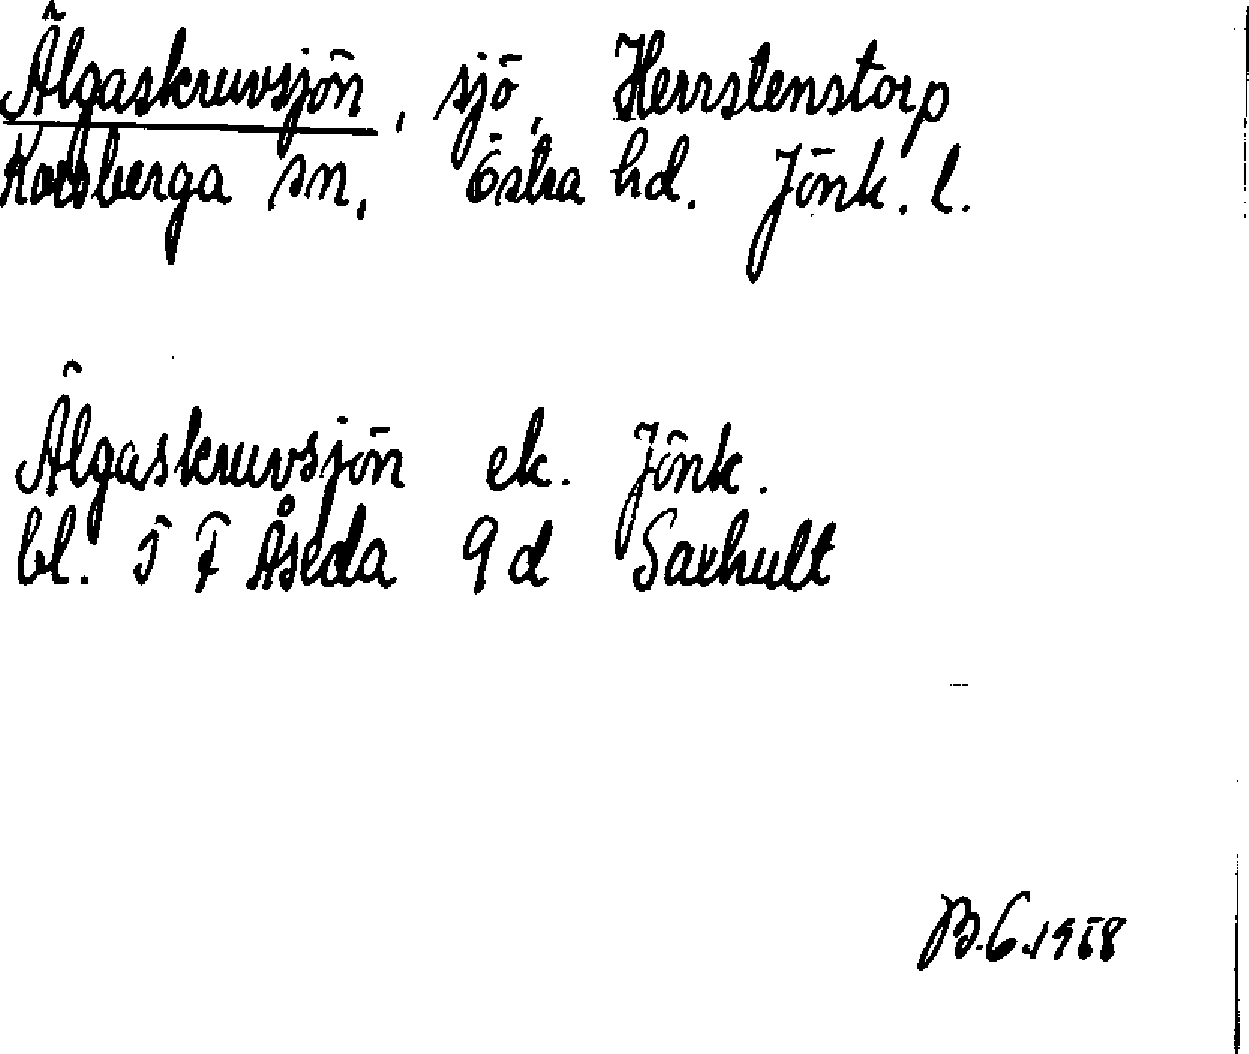 Älgaskruvsjön, sjö, Herrstenstorp
Korsberga sn, Östra hd. Jönk. l.
Älgaskruvsjön ek. Jönk.
bl. 5 F Åseda 9 d Saxhult
B.G. 1958